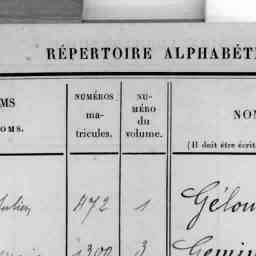 RÉPERTOIRE ALPHABÉT
MS
OMS.
NUMÉROS
ma-
tricules.
NU-
MÉRO
du
volume.
NO
(Il doit être écrit
Julien 472 1 Gélou
1300 3 Gemin